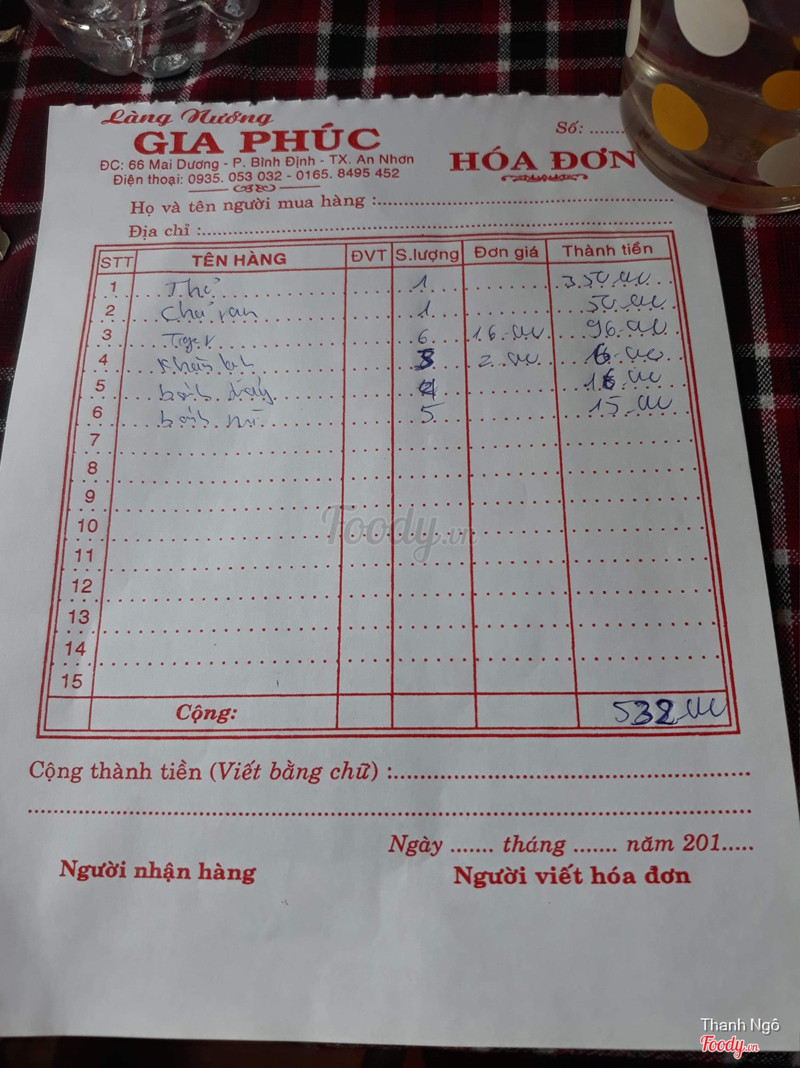 Làng Nướng
GIA PHÚC
ĐC: 66 Mai Dương - P. Bình Định - TX. An Nhơn
Điện thoại: 0935. 053 032 - 0165. 8495 452
Số: ........
HÓA ĐƠN
Họ và tên người mua hàng :
Địa chỉ :
STT TÊN HÀNG ĐVT S.lượng Đơn giá Thành tiền
1 Thỏ 1 350
2 Chả ram 1 50
3 Tiger 6 16 96
4 Khăn lạnh 2
5 bánh tráng
6 bánh mì 5 15
7
8
9
10
11
12
13
14
15
Cộng: 532
Foody.vn
Cộng thành tiền (Viết bằng chữ) :
Ngày ....... tháng ....... năm 201.....
Người nhận hàng Người viết hóa đơn
Thanh Ngô
Foody.vn